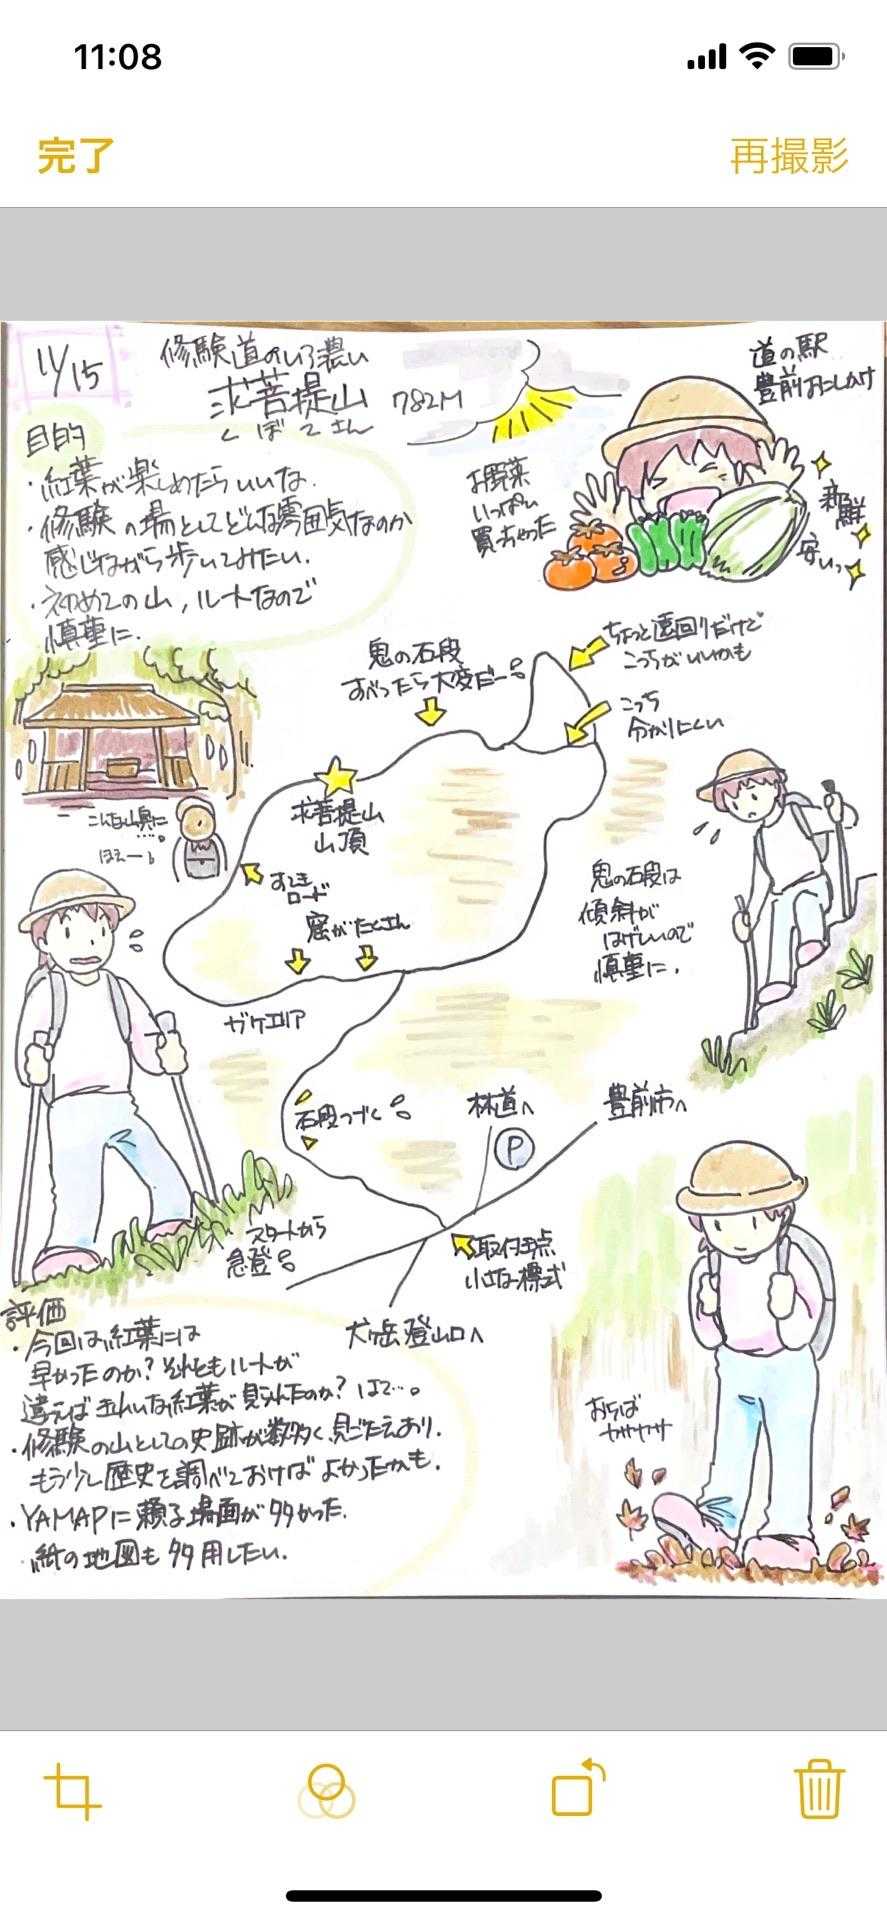 11:08
完了
再撮影
11/15
修験道のいろ濃い
求菩提山 782M
くぼてさん
道の駅
豊前おこしかけ
目的
・紅葉が楽しめたらいいな.
・修験の場としてどんな雰囲気なのか
感じながら歩いてみたい.
・初めての山,ルートなので
慎重に.
お野菜
いっぱい
買っちゃった
新鮮
安いっ
鬼の石段
すべったら大変だー
ちょっと遠回りだけど
こっちがいいかも
こっち
分かりにくい
求菩提山
山頂
こんな山奥に
……。
ほぇー
すてき
ロード
窟がたくさん
鬼の石段は
傾斜が
はげしいので
慎重に.
ガケエリア
石段つづく
林道へ
豊前市へ
P
スタートから
急登
取付地点
小さな標式
犬ヶ岳登山口へ
評価
・今回は紅葉には
早かったのか?それともルートが
違えばきれいな紅葉が見られたのか?はて…。
・修験の山としての史跡が数多く見ごたえあり.
もう少し歴史を調べておけばよかったかも.
・YAMAPに頼る場面が多かった.
紙の地図も多用したい.
おちば
カサカサ